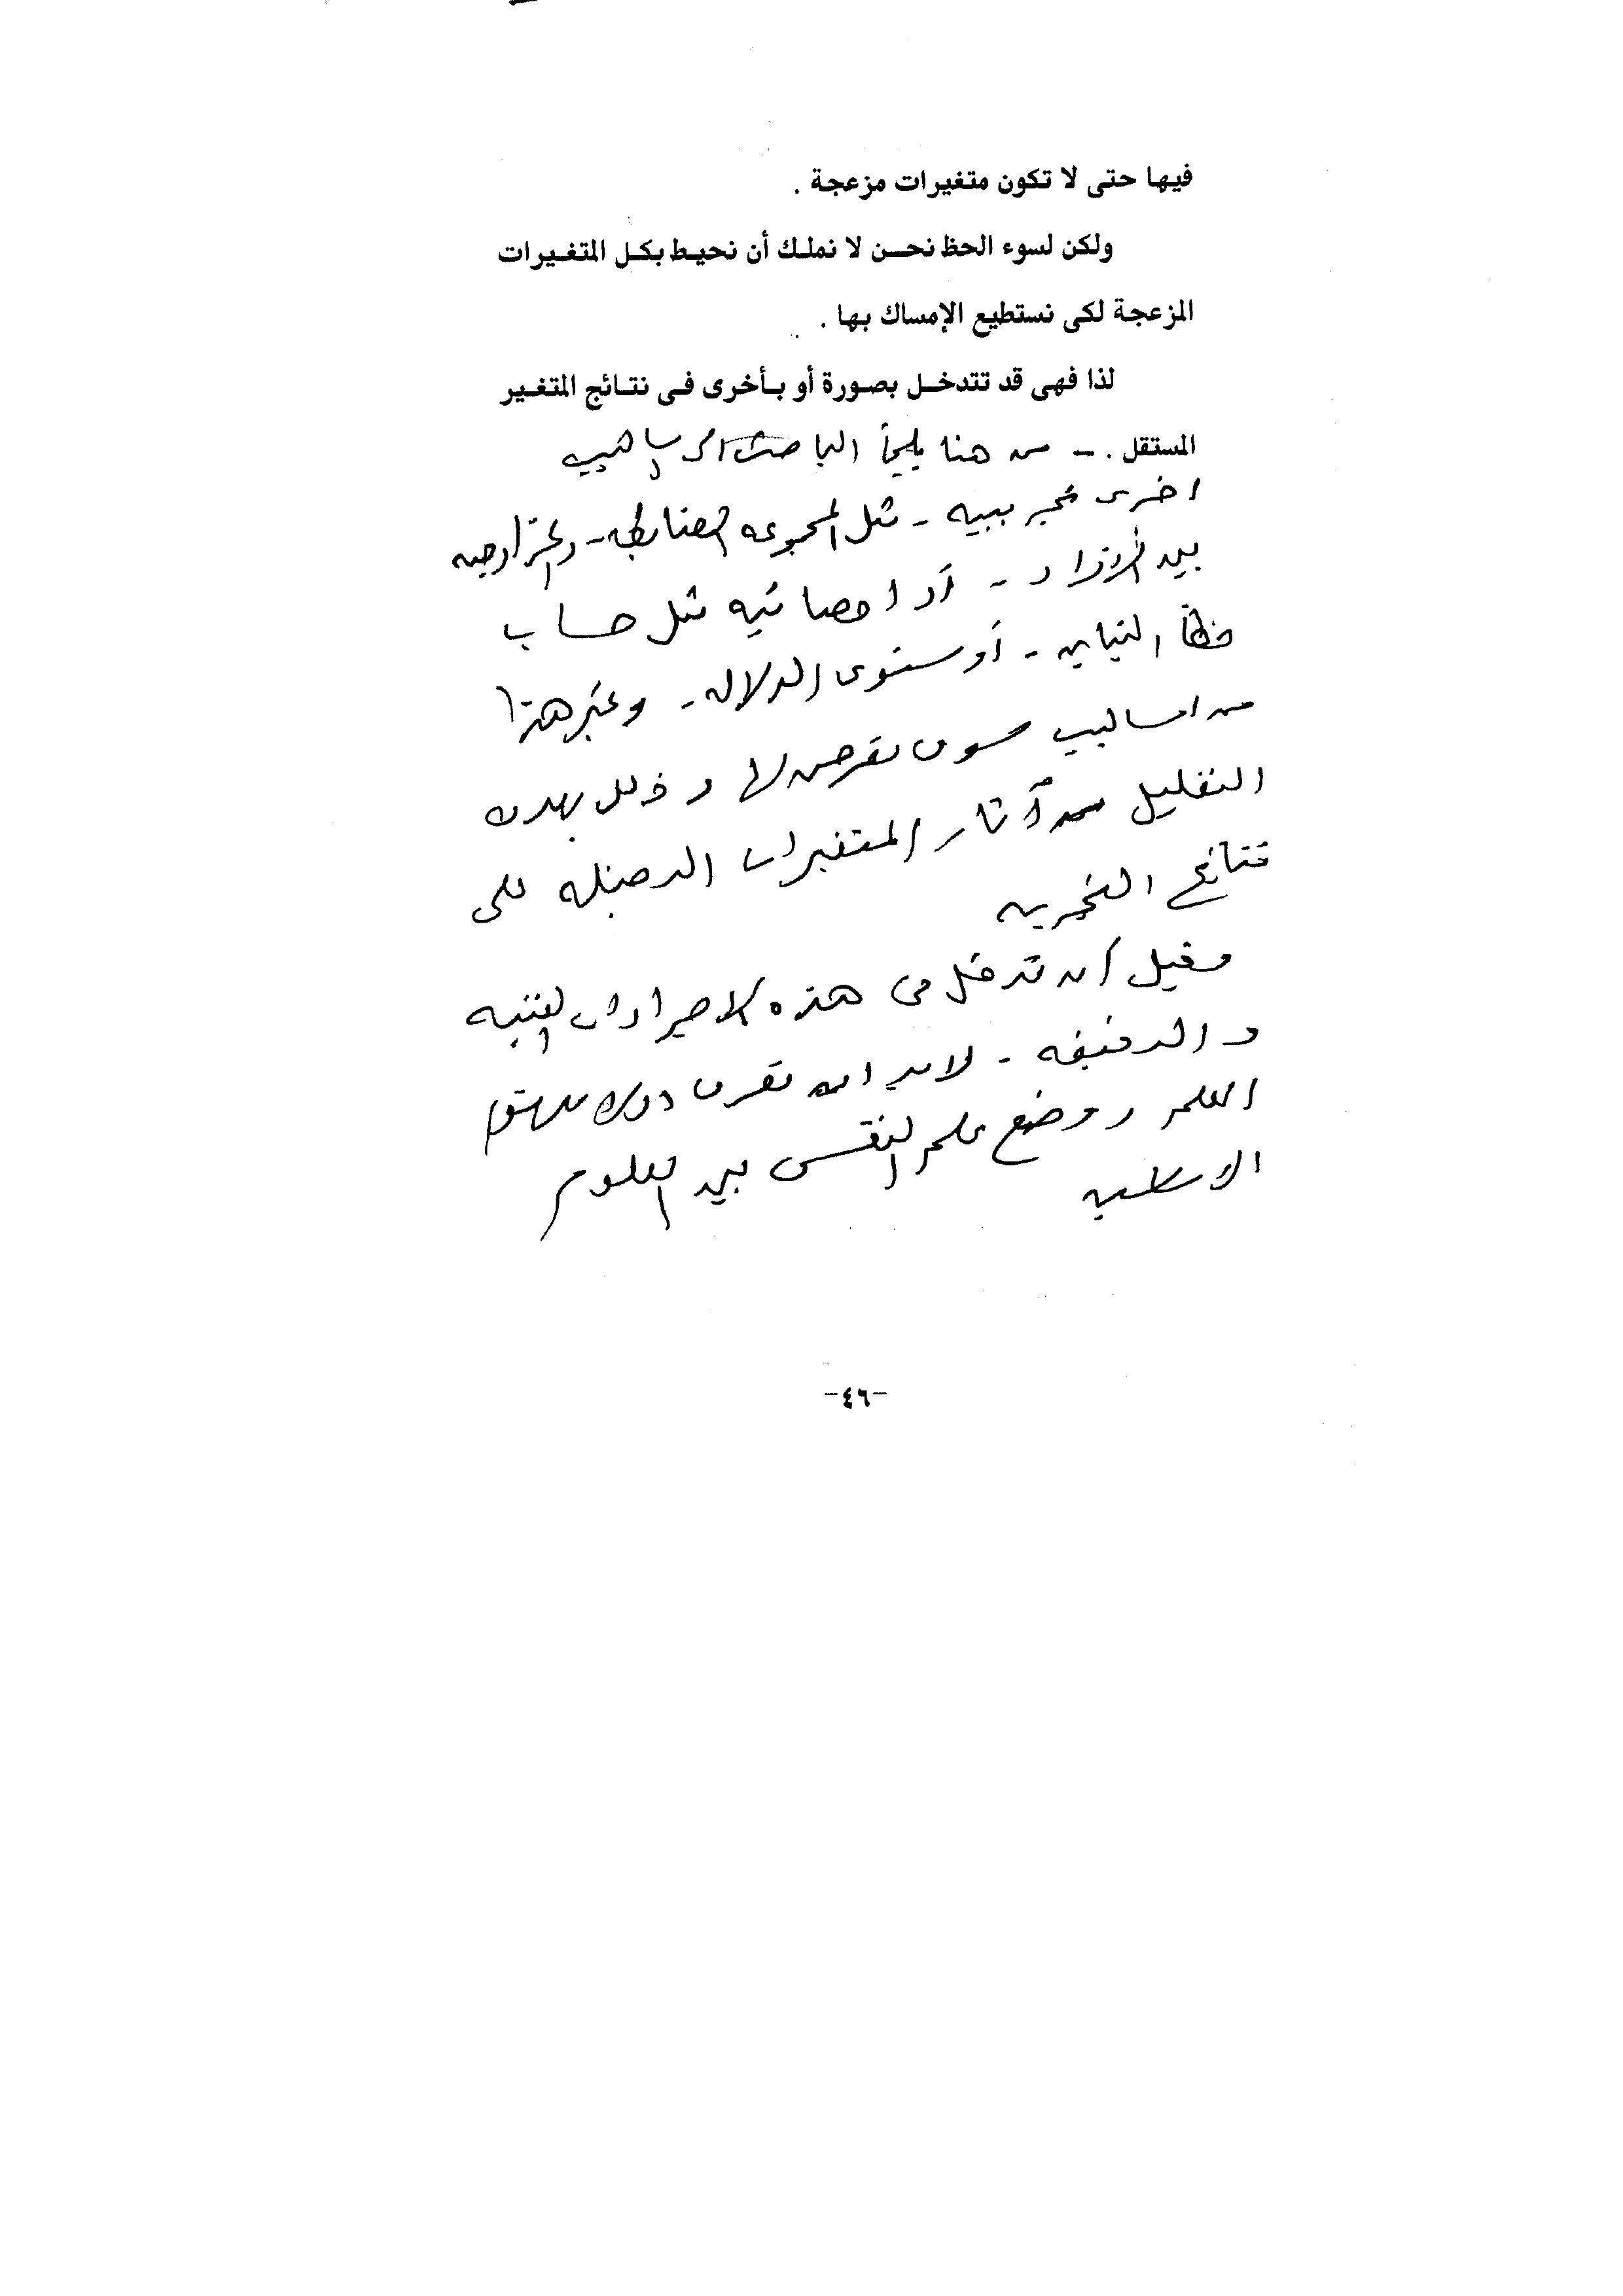 فيها حتى لا تكون متغيرات مزعجة .
ولكن لسوء الحظ نحن لا نملك أن نحيط بكل المتغيرات
المزعجة لكى نستطيع الإمساك بها .
لذا فهى قد تتدخل بصورة أو بأخرى فى نتائج المتغير
المستقل . - من هنا يلجأ الباحث الى اساليب
اخرى تجريبيه - مثل المجموعه الضابطه - والمزاوجه
بين الافراد - أو احصائيه مثل حساب
خطأ التباين - أو مستوى الدلاله - وغير هذا
من اساليب سوف نعرض لها وذلك بهدف
التقليل من آثار المتغيرات الدخيله على
نتائج التجريب
وقبل أن ندخل فى هذه الاجراءات الفنيه
والدقيقه - لابد ان نعرف
العلم ووضع علم النفس بين العلوم
الانسانيه
-٤٦-